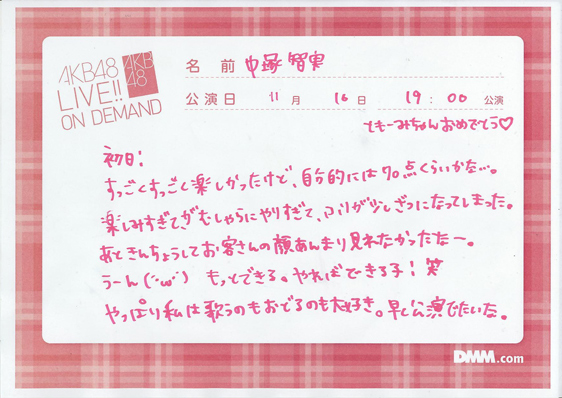 AKB48
LIVE!!
ON DEMAND
AKB
48
名前 中塚智実
公演日 11月 16日 19:00 公演
ともーみちゃんおめでとう♡
初日:
すっごくすっごく楽しかったけど、自分的には70点くらいかな…。
楽しみすぎてがむしゃらにやりすぎて、フリが少しざつになってしまった。
あときんちょうしてお客さんの顔あんまり見れなかったなー。
うーん(´・ω・`) もっとできる。やればできる子!笑
やっぱり私は歌うのもおどるのも大好き。早く公演でたいな。
DMM.com